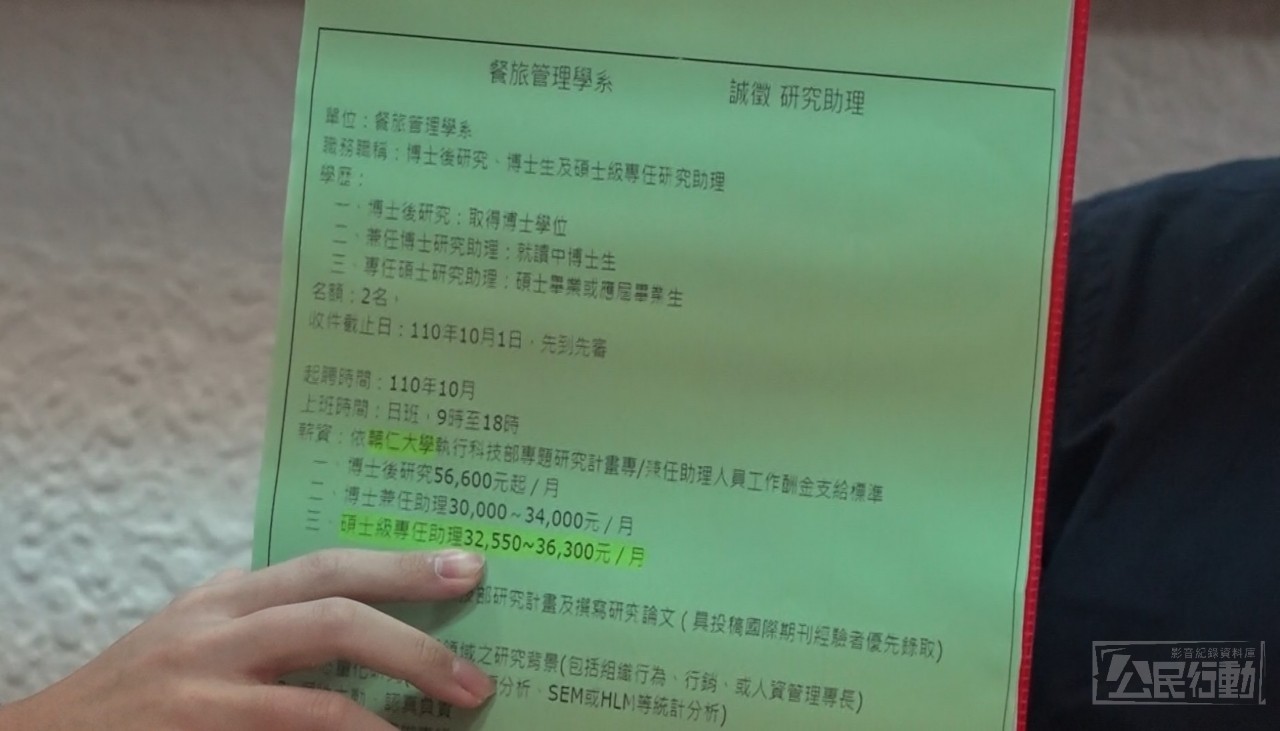 餐旅管理學系 誠徵 研究助理
單位：餐旅管理學系
職務職稱：博士後研究、博士生及碩士級專任研究助理
學歷：
一、博士後研究：取得博士學位
二、兼任博士研究助理：就讀中博士生
三、專任碩士研究助理：碩士畢業或應屆畢業生
名額：2名，
收件截止日：110年10月1日，先到先審
起聘時間：110年10月
上班時間：日班，9時至18時
薪資：依輔仁大學執行科技部專題研究計畫專/兼任助理人員工作酬金支給標準
一、博士後研究56,600元起/月
二、博士兼任助理30,000~34,000元/月
三、碩士級專任助理32,550~36,300元/月
技部研究計畫及撰寫研究論文(具投稿國際期刊經驗者優先錄取)
領域之研究背景(包括組織行為、行銷、或人資管理專長)
分析、SEM或HLM等統計分析)
認真負責
影音紀錄資料庫
公民行動